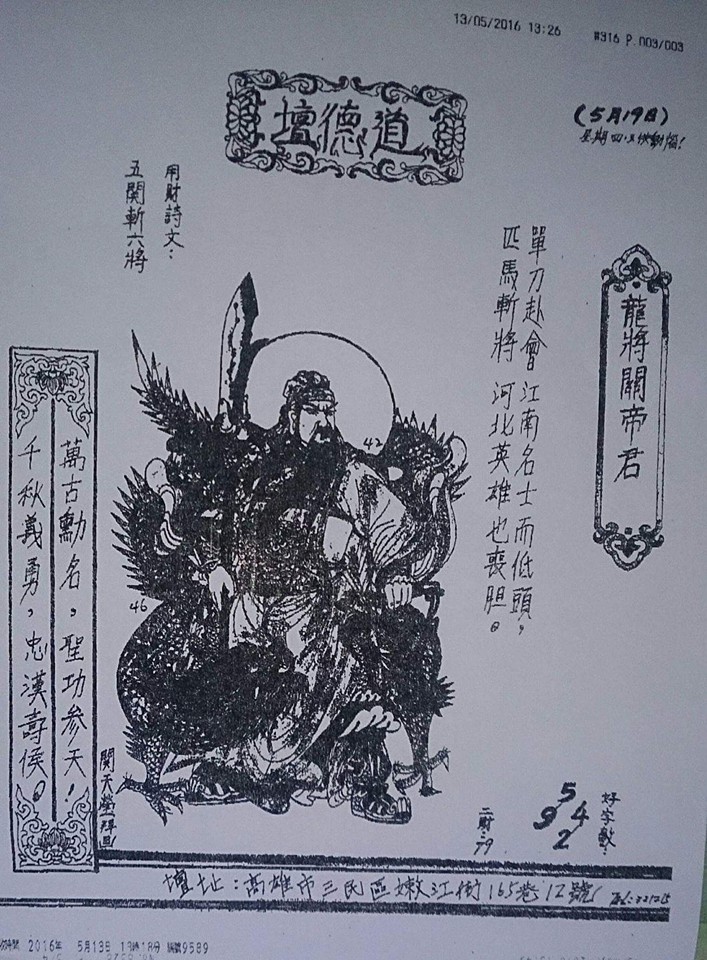 13/05/2016 13:26 #316 P.003/003
道德壇
(5月19日)
龍將關帝君
單刀赴會 江南名士而低頭,
匹馬斬將 河北英雄也喪胆。
用財詩文:
五関斬六將
42
46
萬古勳名,聖功参天!
千秋義勇,忠漢壽侯。
好字數:
5
9 4
2
二財:79
壇址:高雄市三民區嫩江街165巷12號
2016年 5月13日 13時18分 編號9589